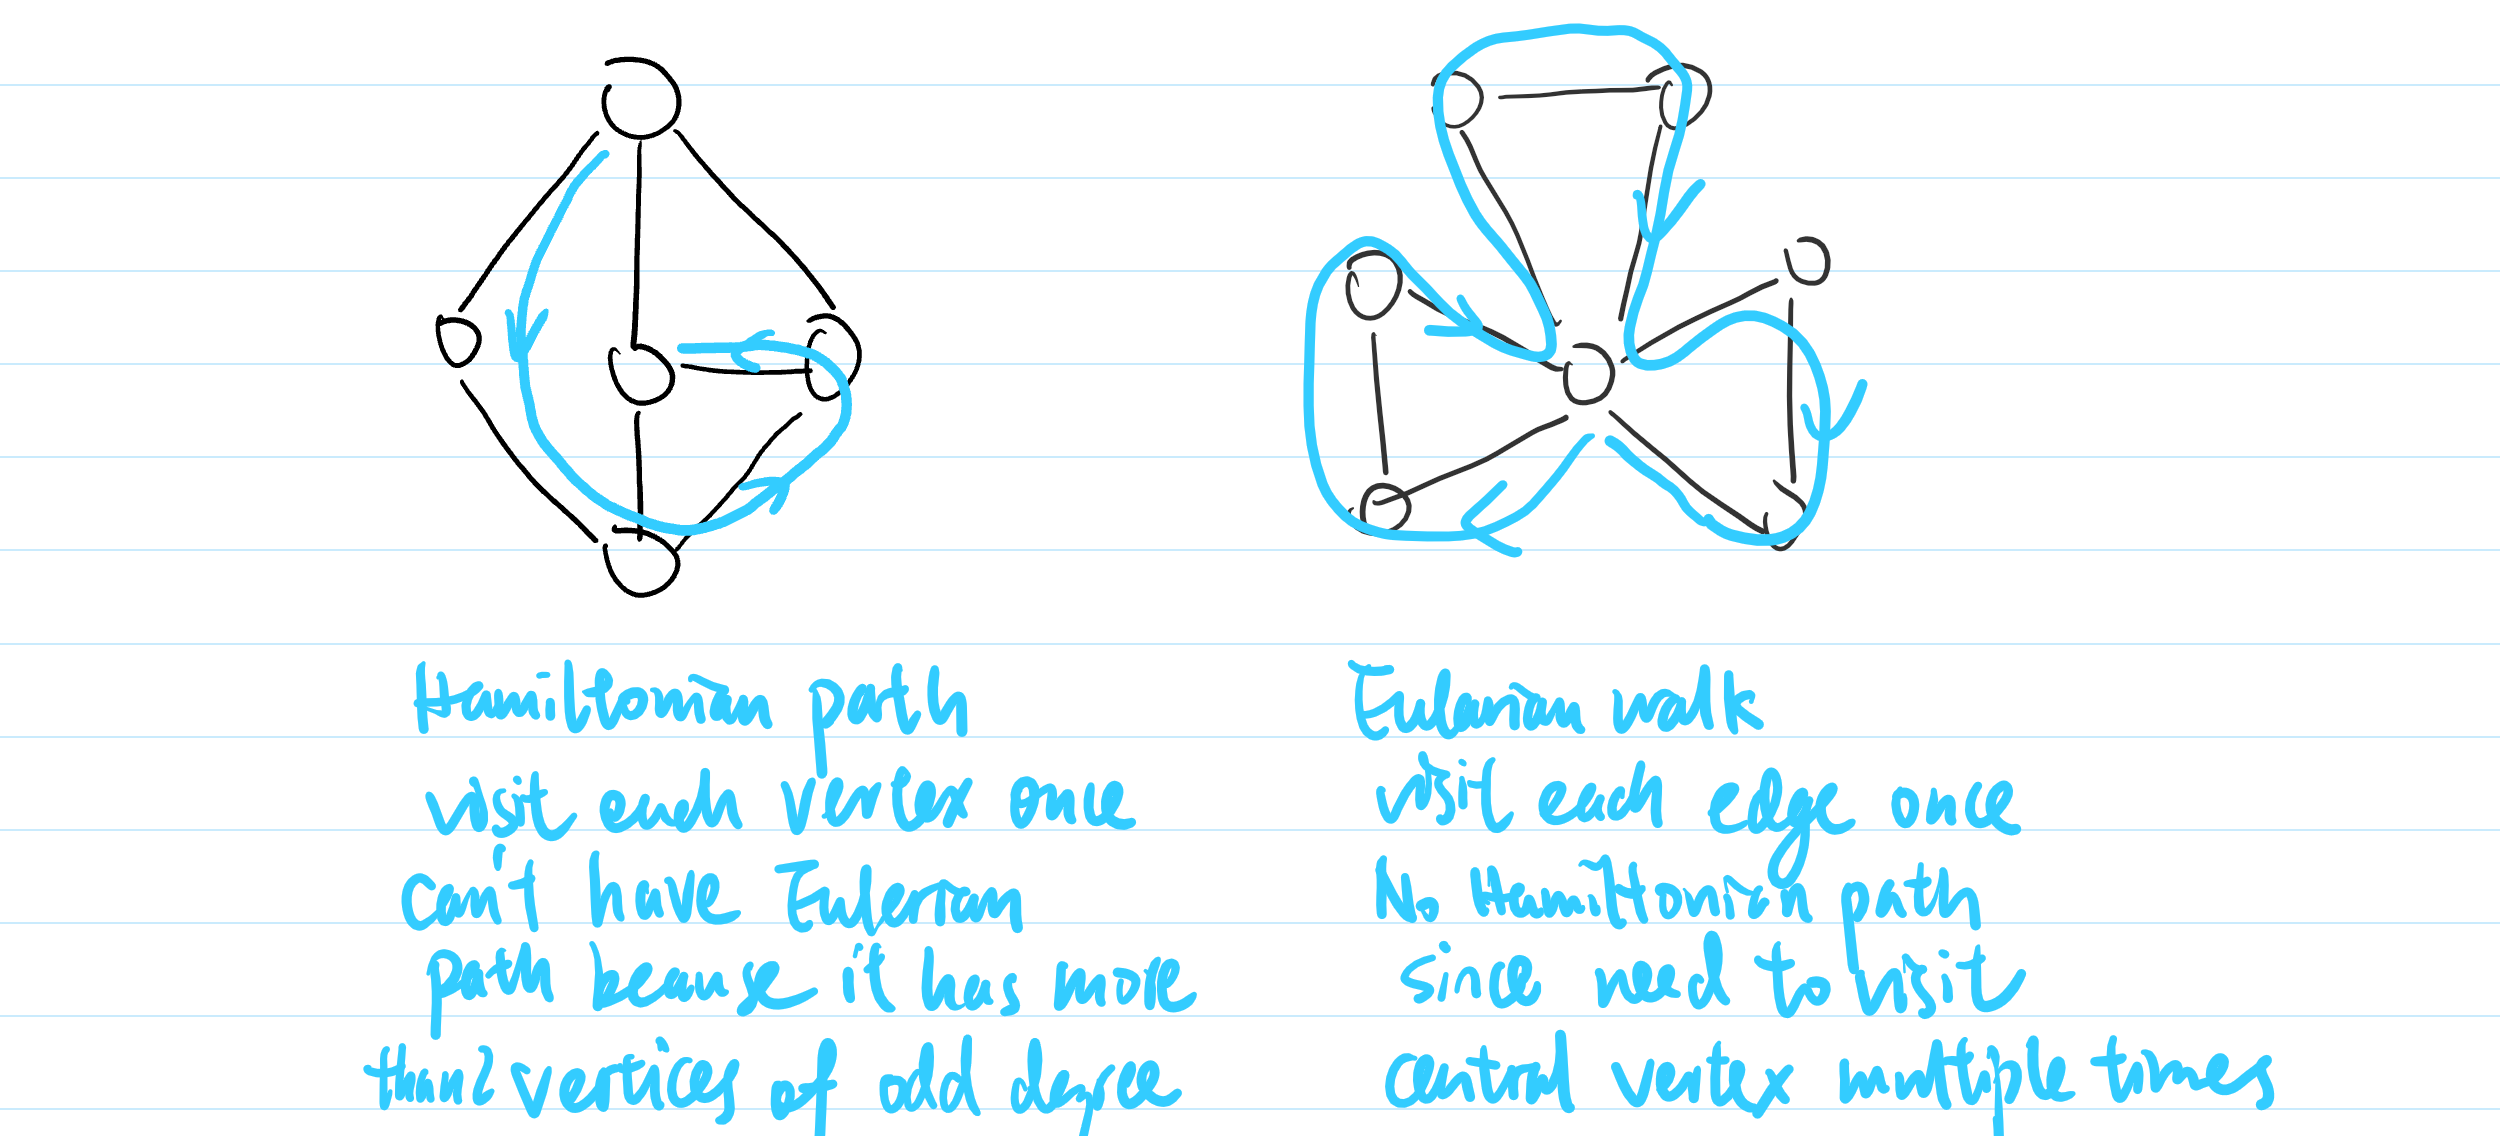 Hamiltonian path
visit each vertex once
can't have Eulerian
path because it has more
than 2 vertices of odd degree
Eulerian walk
visit each edge once
No Hamiltonian path
since need to visit
central vertex multiple times